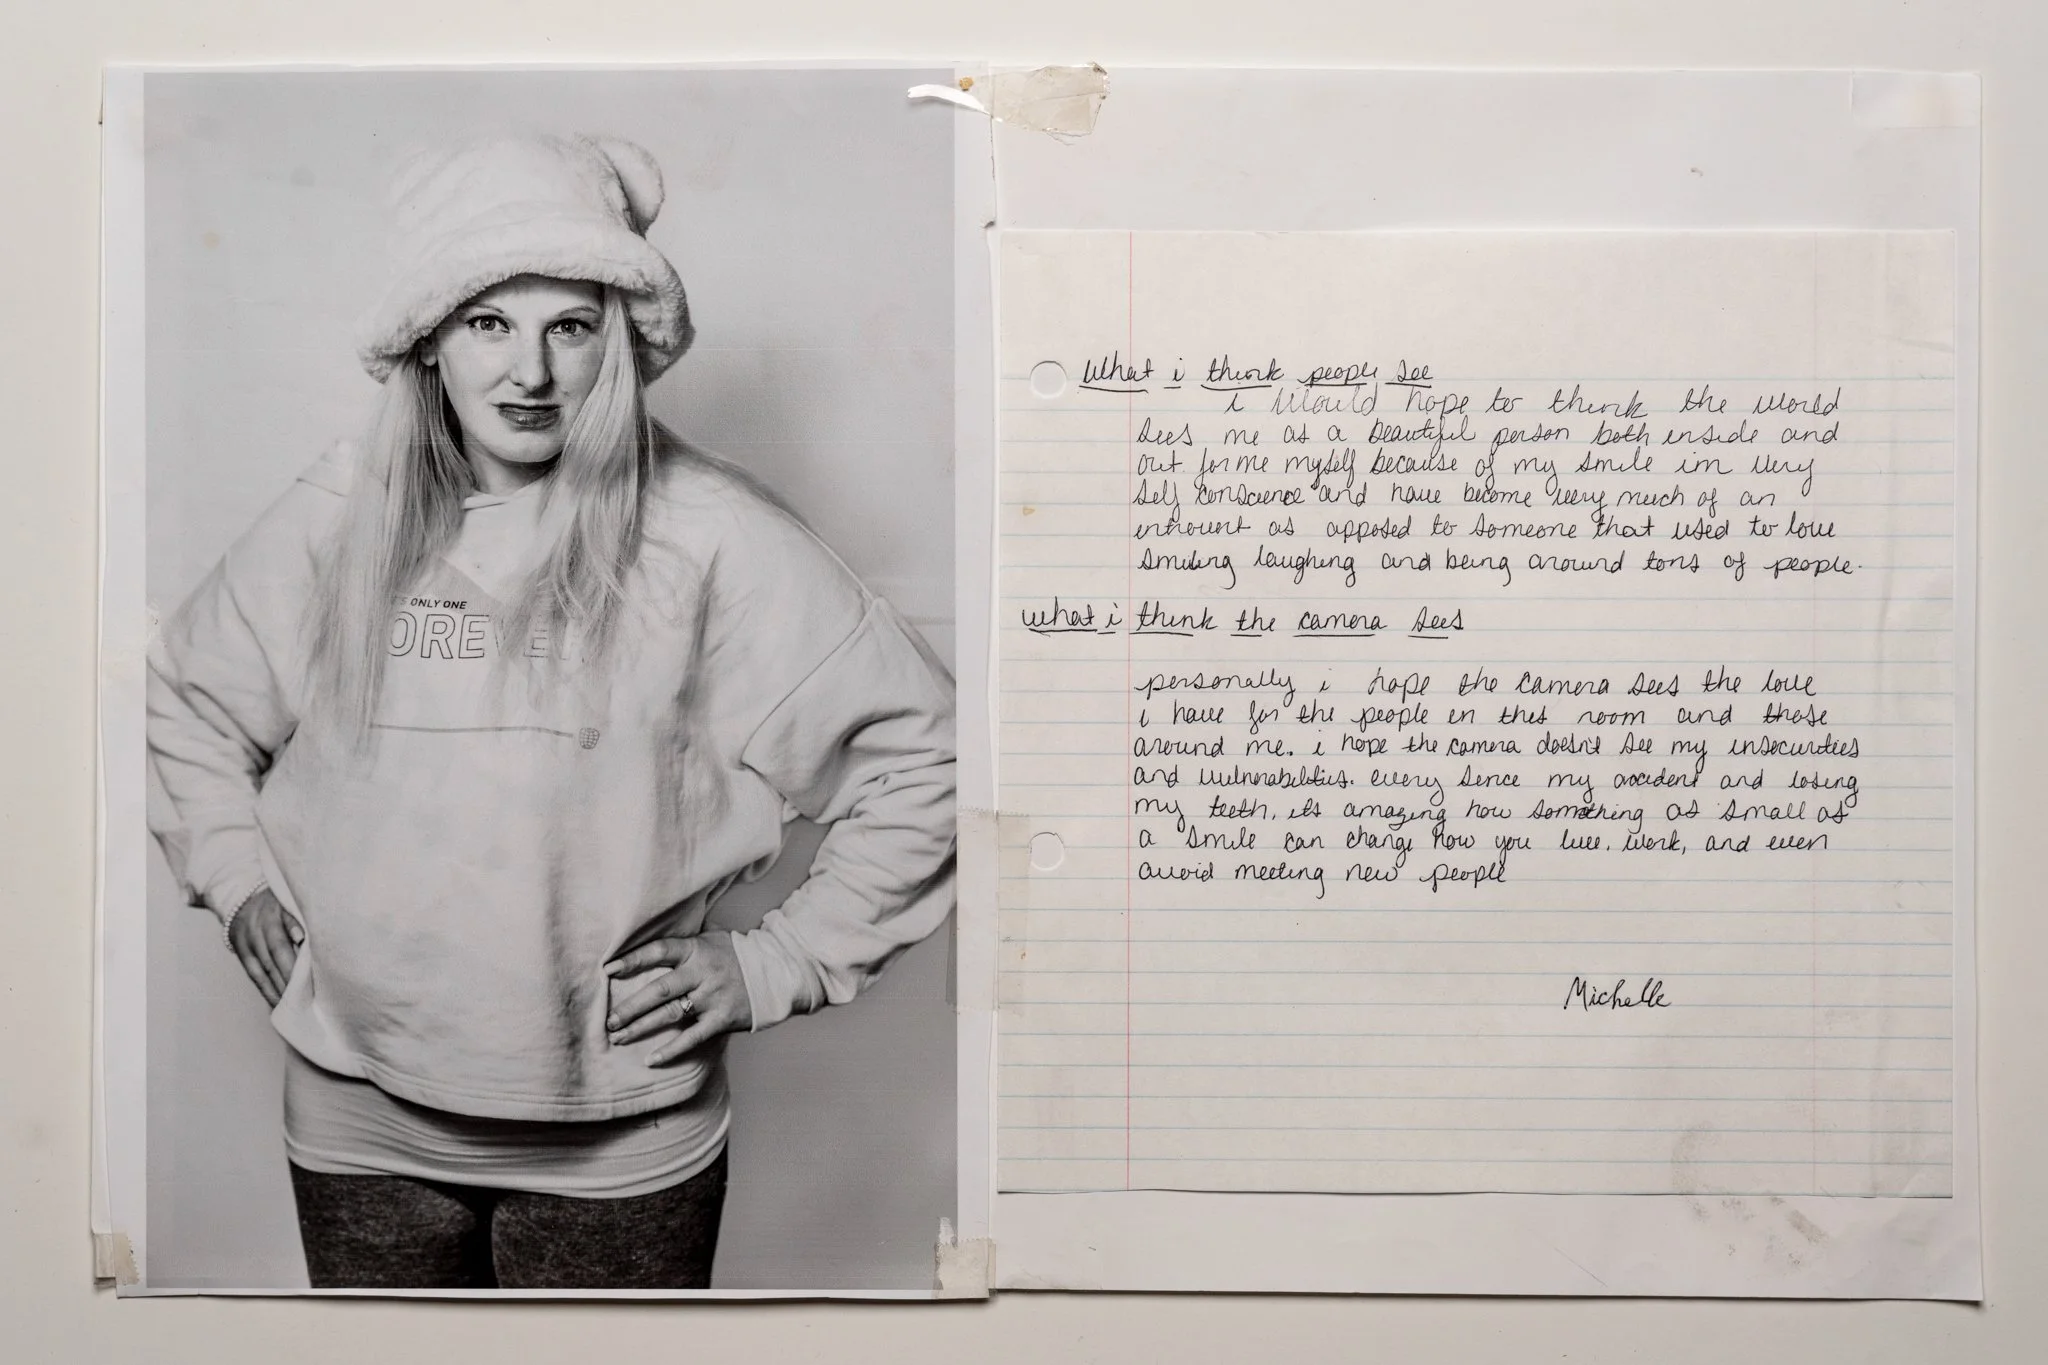 'S ONLY ONE
OREVE
What i think people see
i Would hope to think the world
sees me as a beautiful person both inside and
out. for me myself because of my smile im very
self conscience and have become very much of an
introvert as apposed to someone that used to love
smiling laughing and being around tons of people.
what i think the camera sees
personally i hope the camera sees the love
i have for the people in this room and those
around me. i hope the camera doesn't see my insecurities
and vulnerabilities. every since my accident and losing
my teeth, its amazing how something as small as
a smile can change how you live, work, and even
avoid meeting new people
Michelle